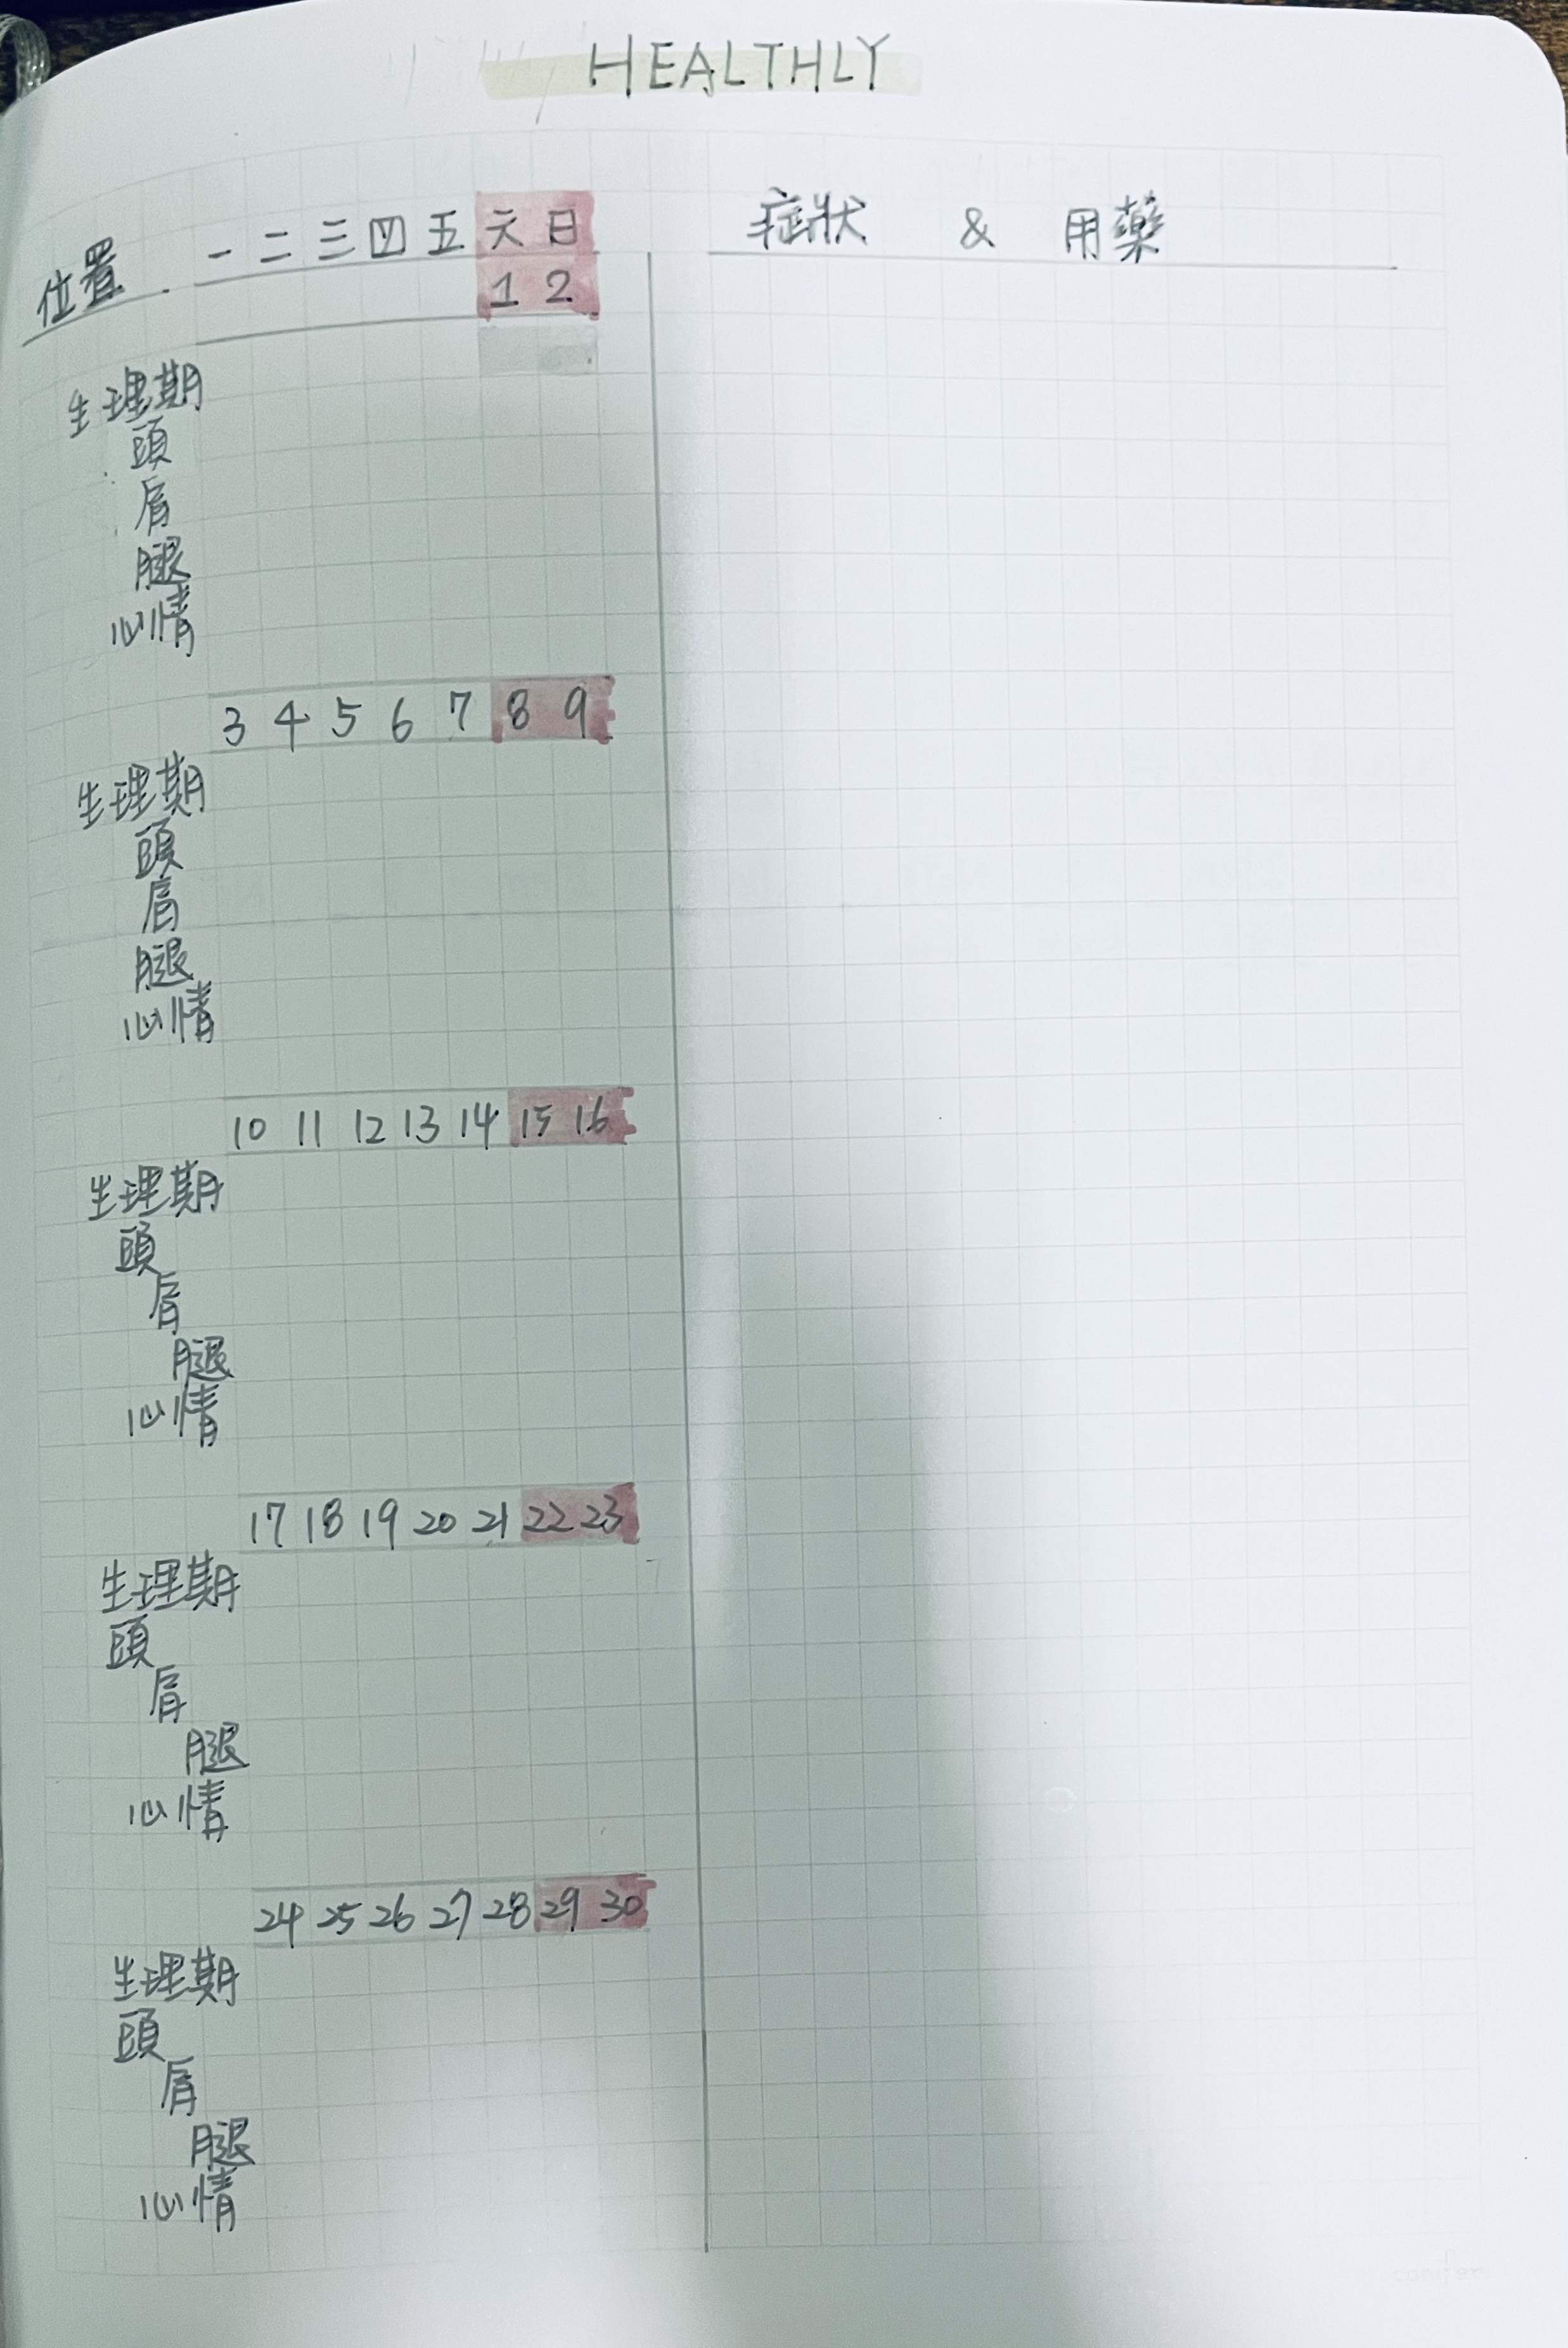 HEALTHLY
位置 一 二 三 四 五 六 日 症狀 & 用藥
1 2
生理期
頭
肩
腿
心情
3 4 5 6 7 8 9
生理期
頭
肩
腿
心情
10 11 12 13 14 15 16
生理期
頭
肩
腿
心情
17 18 19 20 21 22 23
生理期
頭
肩
腿
心情
24 25 26 27 28 29 30
生理期
頭
肩
腿
心情
conifer